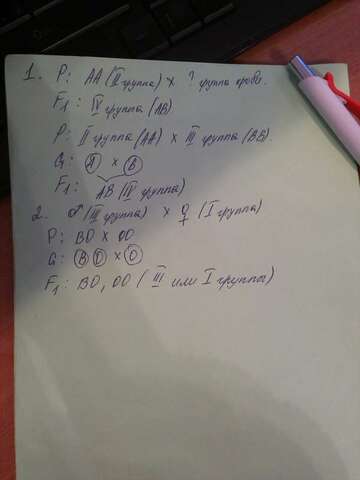 1. P: AA (II группа) x ? группа крови.
F1: IV группа (AB)
P: II группа (AA) x III группа (BB).
G: A x B
F1: AB (IV группа)
2. ♂ (III группа) x ♀ (I группа)
P: BO x OO
G: B O x O
F1: BO, OO (III или I группы)